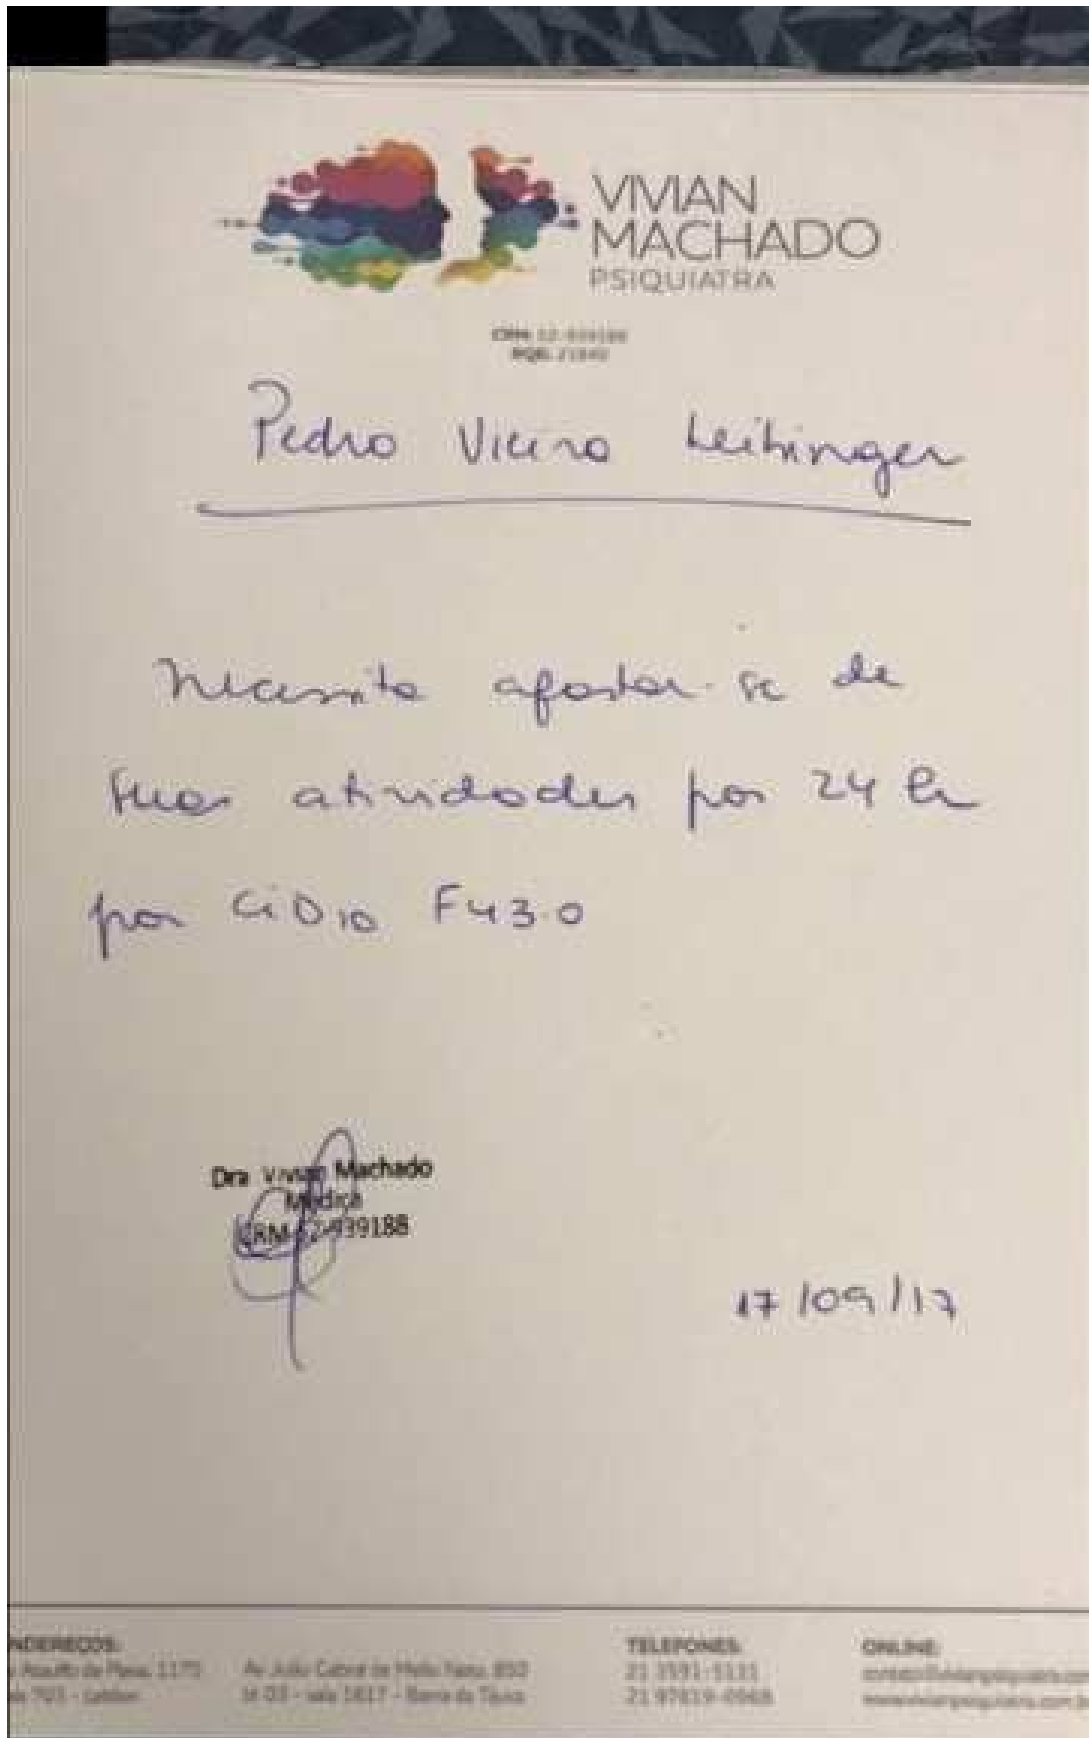 VIVIAN
MACHADO
PSIQUIATRA
CRM: 52-939188
RQE:
Pedro Vieira Leitinger
Necessita afastar-se de
suas atividades por 24 h
por CiD10 F43.0
Dra Vivian Machado
Médica
CRM 52-939188
17/09/17
NDEREÇOS:
Ataulfo de Paiva, 1175
Leblon
Av João Cabral de Mello Neto, 850
bl 03 - sala 1617 - Barra da Tijuca
TELEFONES:
21 3591-5131
21 97819-0968
ONLINE: